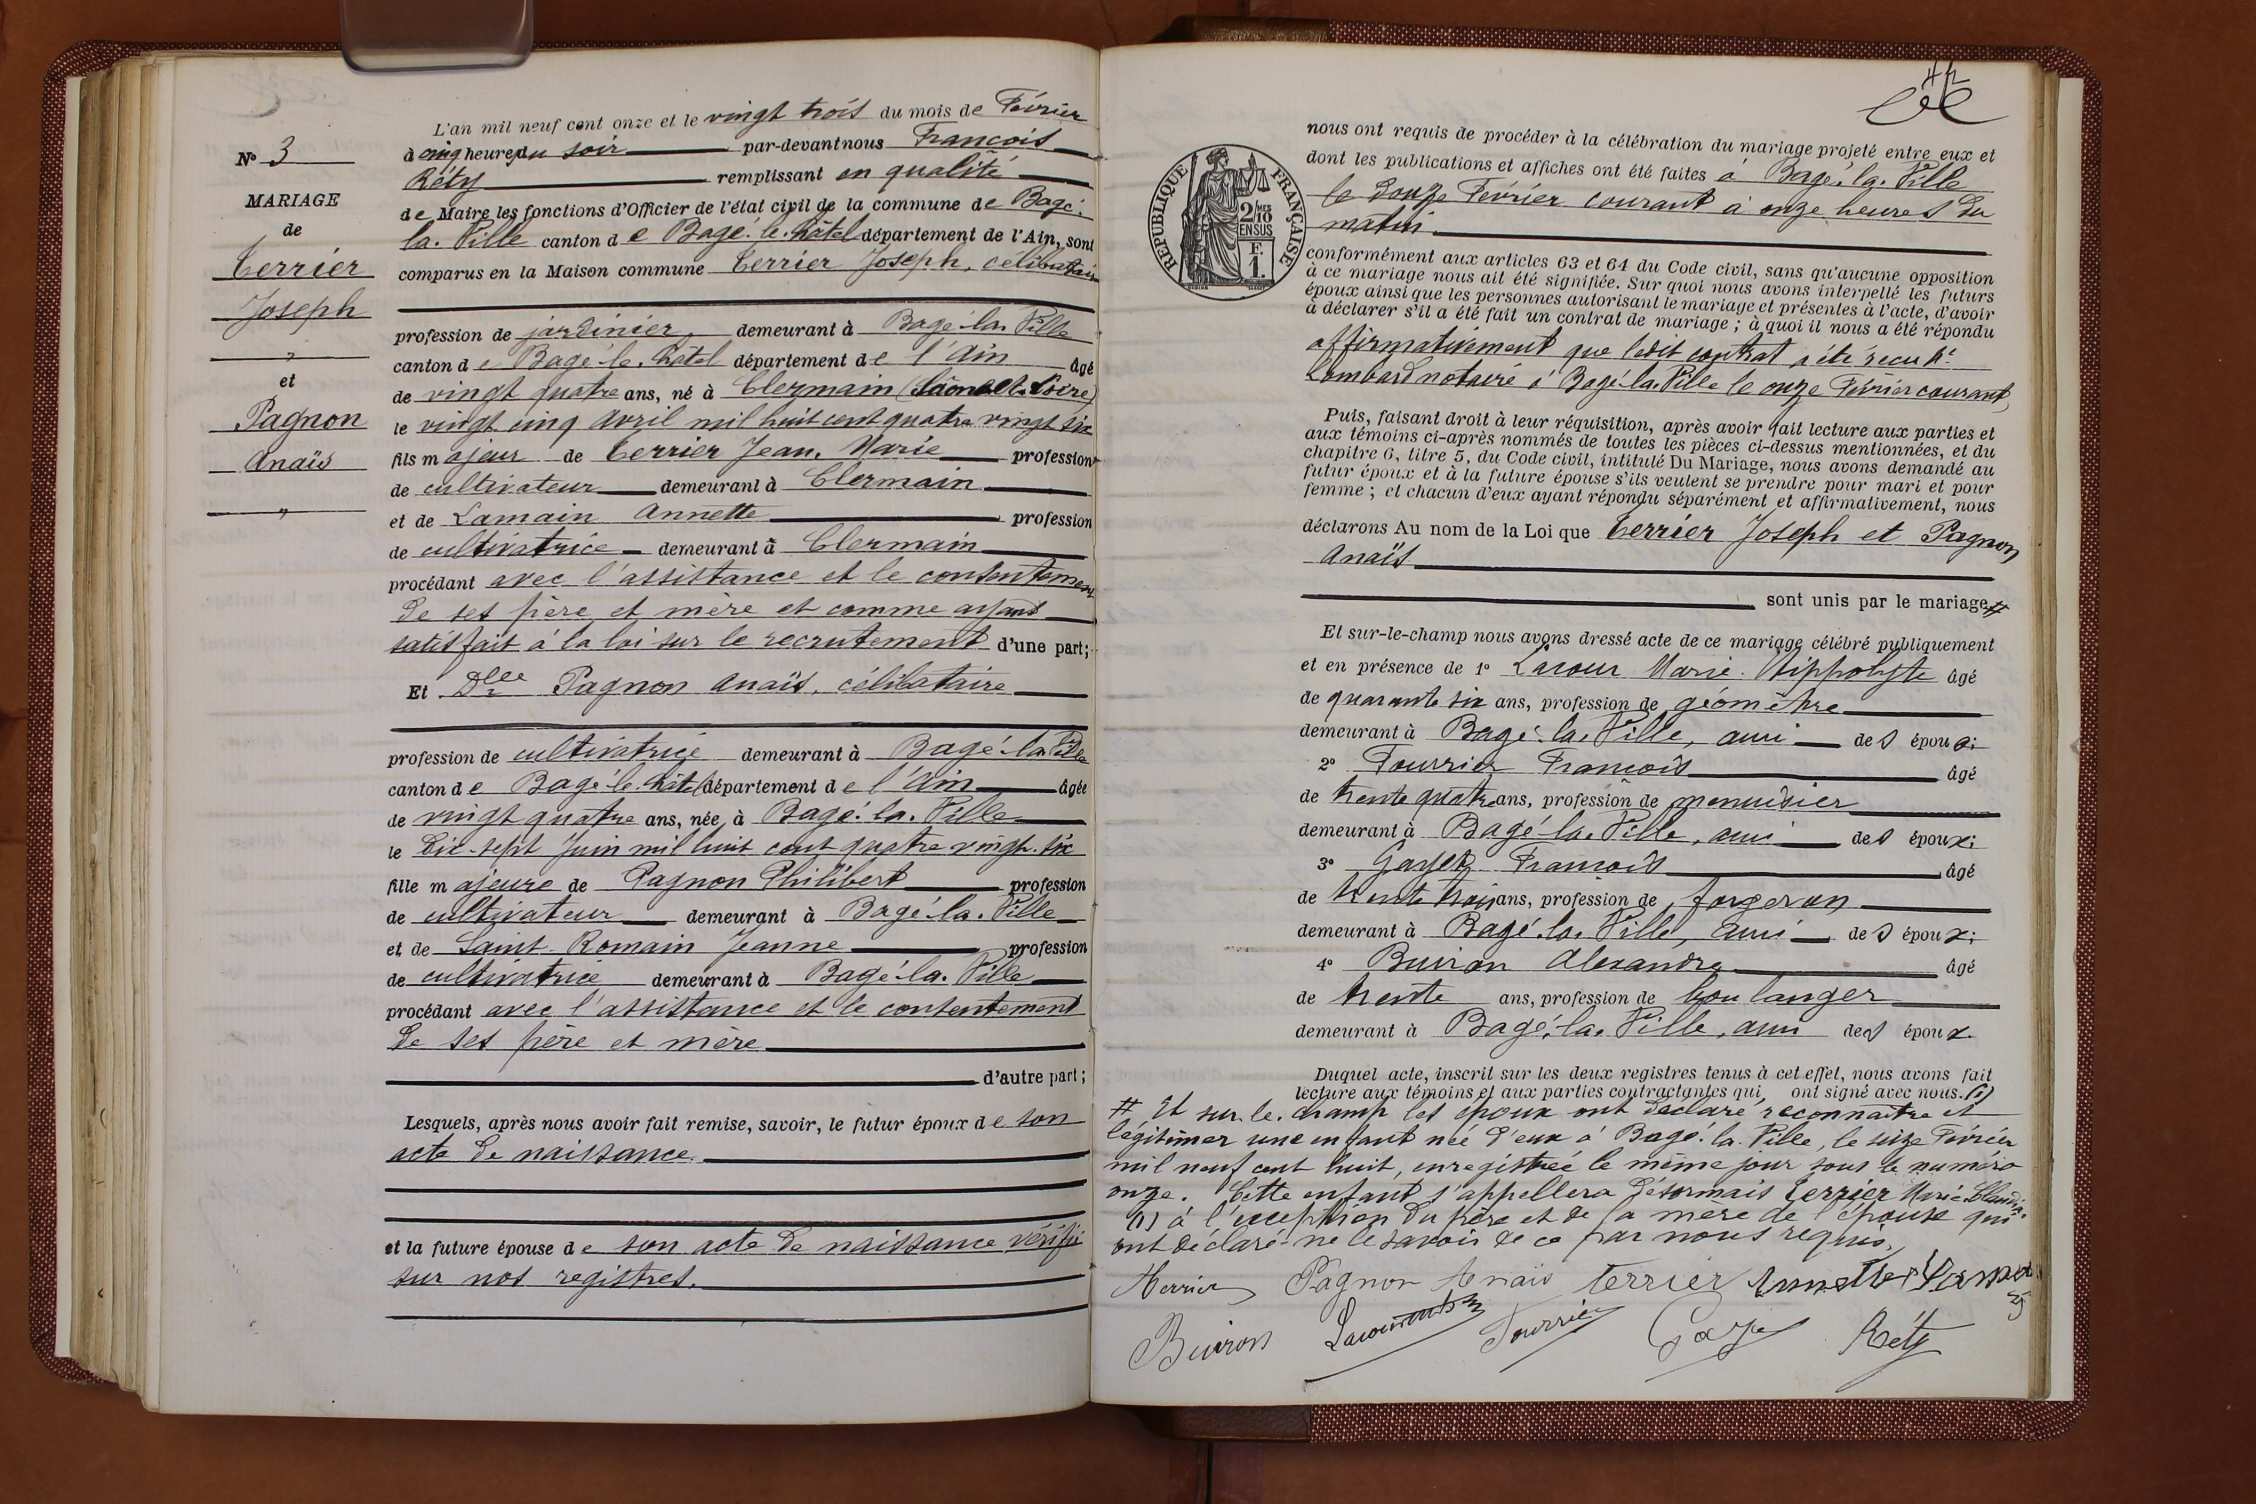 N° 3
MARIAGE
de
Terrier
Joseph
"
et
Pagnon
Anaïs
"
L'an mil neuf cent onze et le vingt trois du mois de Février
à cinq heures du soir par-devant nous François
Réty remplissant en qualité
de Maire les fonctions d'Officier de l'état civil de la commune de Bagé-
la-Ville canton de Bagé-le-Châtel département de l'Ain, sont
comparus en la Maison commune Terrier Joseph, célibataire
profession de jardinier, demeurant à Bagé-la-Ville
canton de Bagé-le-Châtel département de l'Ain âgé
de vingt quatre ans, né à Clermain (Saône et Loire)
le vingt cinq Avril mil huit cent quatre vingt six
fils majeur de Terrier Jean-Marie profession
de cultivateur demeurant à Clermain
et de Lamain Annette profession
de cultivatrice demeurant à Clermain
procédant avec l'assistance et le consentement
de ses père et mère et comme ayant
satisfait à la loi sur le recrutement d'une part;
Et Dlle Pagnon Anaïs, célibataire
profession de cultivatrice demeurant à Bagé-la-Ville
canton de Bagé-le-Châtel département de l'Ain âgée
de vingt quatre ans, née à Bagé-la-Ville
le dix-sept Juin mil huit cent quatre vingt-six
fille majeure de Pagnon Philibert profession
de cultivateur demeurant à Bagé-la-Ville
et de Saint-Romain Jeanne profession
de cultivatrice demeurant à Bagé-la-Ville
procédant avec l'assistance et le consentement
de ses père et mère
d'autre part;
Lesquels, après nous avoir fait remise, savoir, le futur époux de son
acte de naissance
et la future épouse de son acte de naissance vérifié
sur nos registres.
42
REPUBLIQUE FRANÇAISE
2/10 MES
EN SUS
F.
1.
nous ont requis de procéder à la célébration du mariage projeté entre eux et
dont les publications et affiches ont été faites à Bagé-la-Ville
le douze Février courant à onze heures du
matin.
conformément aux articles 63 et 64 du Code civil, sans qu'aucune opposition
à ce mariage nous ait été signifiée. Sur quoi nous avons interpellé les futurs
époux ainsi que les personnes autorisant le mariage et présentes à l'acte, d'avoir
à déclarer s'il a été fait un contrat de mariage; à quoi il nous a été répondu
affirmativement que ledit contrat a été reçu Me
Lombard notaire à Bagé-la-Ville le onze Février courant,
Puis, faisant droit à leur réquisition, après avoir fait lecture aux parties et
aux témoins ci-après nommés de toutes les pièces ci-dessus mentionnées, et du
chapitre 6, titre 5, du Code civil, intitulé Du Mariage, nous avons demandé au
futur époux et à la future épouse s'ils veulent se prendre pour mari et pour
femme; et chacun d'eux ayant répondu séparément et affirmativement, nous
déclarons Au nom de la Loi que Terrier Joseph et Pagnon
Anaïs
sont unis par le mariage #
Et sur-le-champ nous avons dressé acte de ce mariage célébré publiquement
et en présence de 1° Lacour Marie-Hippolyte âgé
de quarante six ans, profession de géomètre
demeurant à Bagé-la-Ville, ami des époux;
2° Fourrier François âgé
de trente quatre ans, profession de menuisier
demeurant à Bagé-la-Ville, ami des époux;
3° François âgé
de trente trois ans, profession de forgeron
demeurant à Bagé-la-Ville, ami des époux;
4° Buiron Alexandre âgé
de trente ans, profession de boulanger
demeurant à Bagé-la-Ville, ami des époux.
Duquel acte, inscrit sur les deux registres tenus à cet effet, nous avons fait
lecture aux témoins et aux parties contractantes qui ont signé avec nous. (1)
# Et sur-le-champ les époux ont déclaré reconnaître et
légitimer une enfant née d'eux à Bagé-la-Ville, le seize Février
mil neuf cent huit, enregistrée le même jour sous le numéro
onze. Cette enfant s'appellera désormais Terrier Marie-Claudia.
(1) à l'exception du père et de la mère de l'épouse qui
ont déclaré ne le savoir de ce par nous requis.
Terrier Pagnon Anaïs Terrier Annette
Buiron Lacour Fourrier Réty